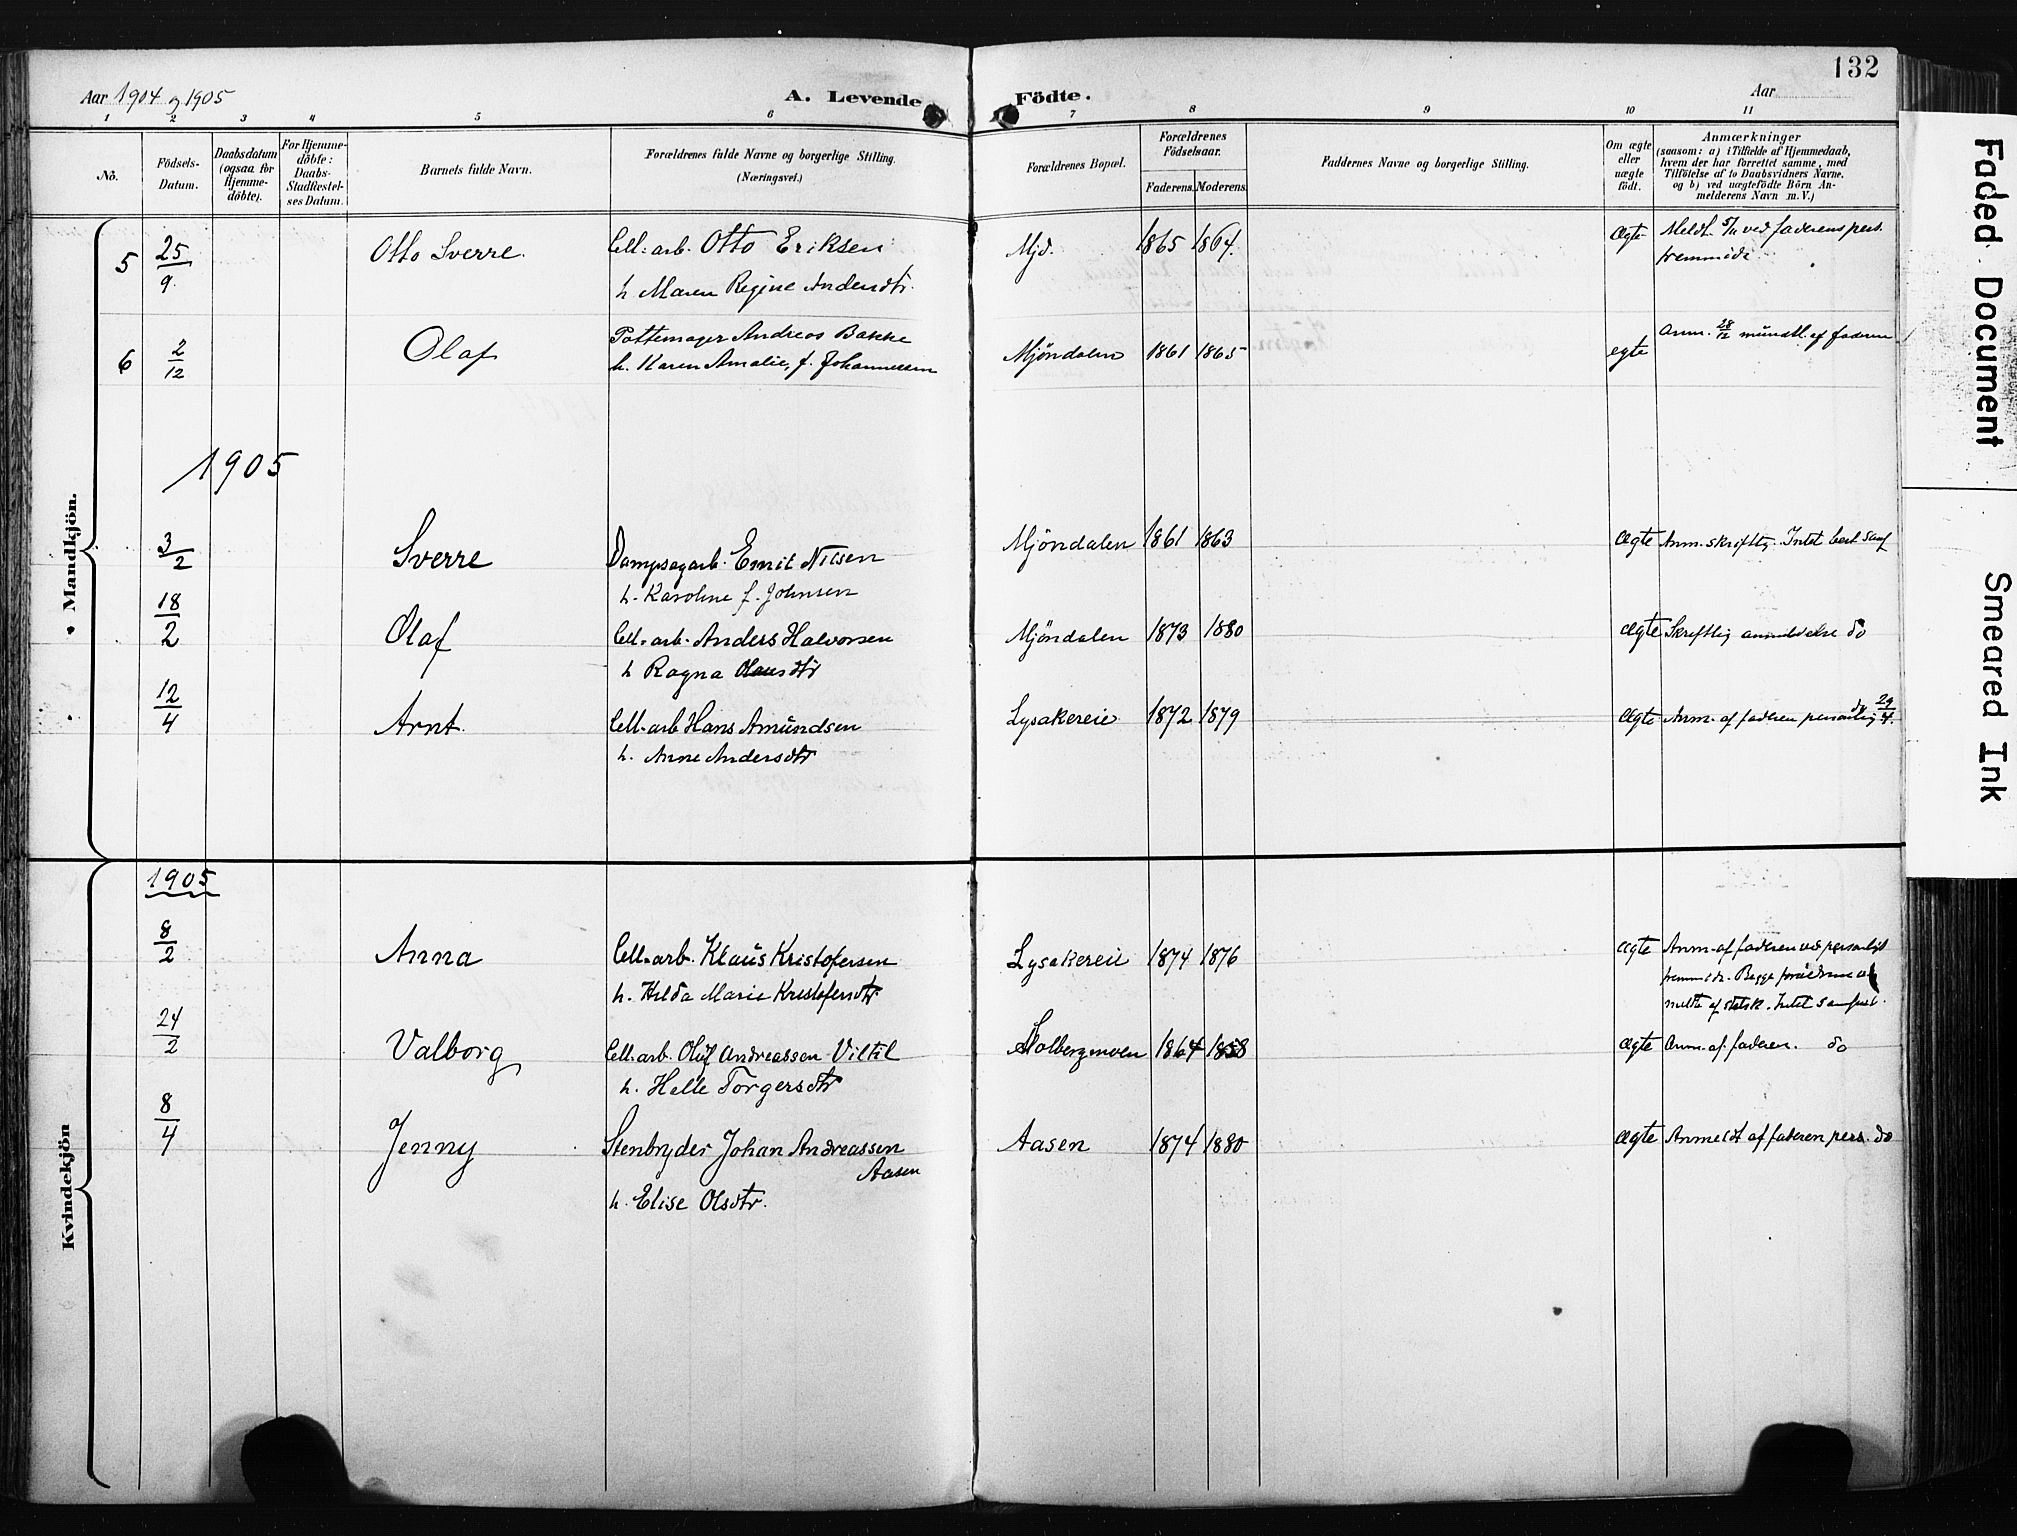 132
Aar 1904 og 1905
A. Levende Födte.
Aar
1 2 3 4 5 6 7 8 9 10 11
No.
Födsels-Datum.
Daabsdatum (ogsaa for Hjemme-döbte).
For Hjemme-döbte: Daabs-Stadfæstel-ses Datum.
Barnets fulde Navn.
Forældrenes fulde Navne og borgerlige Stilling.
(Næringsvei.)
Forældrenes Bopæl.
Forældrenes Födselsaar.
Faderens. Moderens.
Faddernes Navne og borgerlige Stilling.
Om ægte eller uægte födt.
Anmærkninger
(saasom: a) i Tilfælde af Hjemmedaab,
hvem der har forrettet samme, med
Tilföielse af to Daabsvidners Navne,
og b) ved uægtefödte Börn An-
melderens Navn m. V.)
Mandkjön.
5 25/9 Otto Sverre. Cell.-arb. Otto Eriksen Mjd. 1865 1864. Ægte Meldt ved faderens pers.
h. Maren Regine Andersdtr. fremmöde
6 2/12 Olaf Pottemager Andreas Bakke Mjöndalen 1861 1865 egte Anm. 28/12 mundtl. af faderen
h. Karen Amalie, f. Johannessen
1905
3/2 Sverre Dampsagarb. Emil Nilsen Mjöndalen 1861 1863 Ægte Anm. skriftlig. Intet
h. Karoline f. Johnsen
18/2 Olaf Cell.-arb. Anders Halvorsen Mjöndalen 1873 1880 Ægte Skriftlig anmeldelse do
h. Ragna Olausdtr
12/4 Arnt. Cell.-arb Hans Amundsen Lysakereie 1872 1879 Ægte Anm. af faderen personlig do 29/4.
h. Anne Andersdtr
Kvindekjön
1905
8/2 Anna Cell.-arb. Klaus Kristofersen Lysakereie 1874 1876 Ægte Anm. af faderen ved personligt
h. Hilda Marie Kristofersdtr. fremmöde. Begge forældrene ud
meldte af statsk. Intet
24/2 Valborg Cell.-arb. Oluf Andreassen Viltil Stolbergmoen 1864 1858 Ægte Anm. af faderen. do
h. Helle Torgersdtr
8/4 Jenny Stenbryder Johan Andreassen Aasen Aasen 1874 1880 Ægte Anmeldt af faderen pers. do
h. Elise Olsdtr.
Faded Document
Smeared Ink